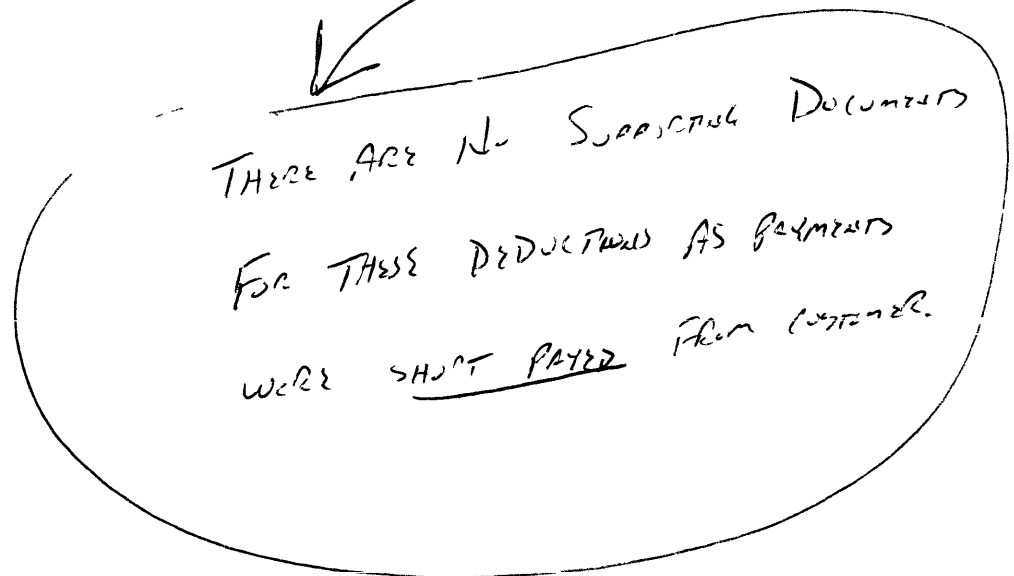 THERE ARE NO SUPPORTING DOCUMENTS
FOR THESE DEDUCTIONS AS PAYMENTS
WERE SHORT PAYED FROM CUSTOMER.